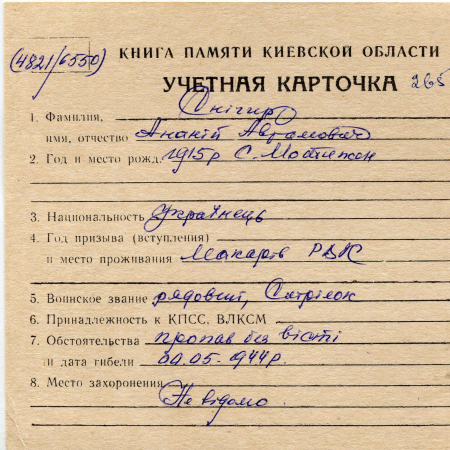 (4821/6550)
КНИГА ПАМЯТИ КИЕВСКОЙ ОБЛАСТИ
УЧЕТНАЯ КАРТОЧКА 265
1. Фамилия, Снігир
имя, отчество Ананій Аврамович
2. Год и место рожд. 1915р С. Мотижин
3. Национальность Українець
4. Год призыва (вступления)
и место проживания Макарів РВК
5. Воинское звание рядовий, Стрілок
6. Принадлежность к КПСС, ВЛКСМ
7. Обстоятельства пропав без вісті
и дата гибели 00.05.1944р.
8. Место захоронения
Не відомо